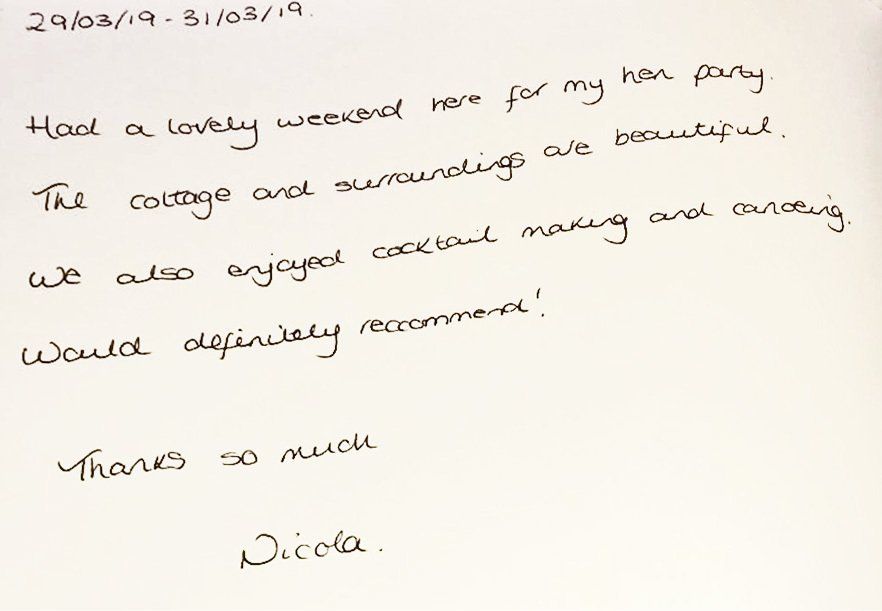 29/03/19 - 31/03/19.
Had a lovely weekend here for my hen party.
The cottage and surroundings are beautiful.
We also enjoyed cocktail making and canoeing.
Would definitely reccommend!
Thanks so much
Nicola.